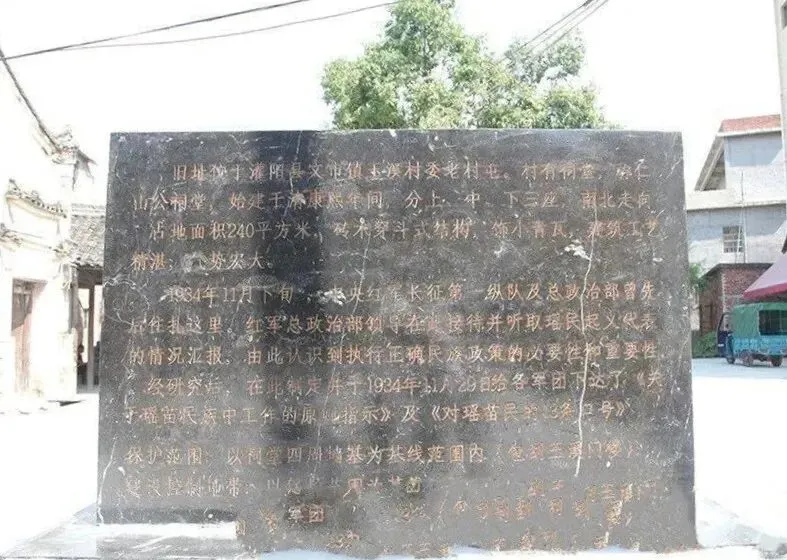 旧址位于灌阳县文市镇玉溪村委老村屯。村有祠堂，
山公祠堂，始建于清康熙年间，分上、中、下三座，南北走向
占地面积240平方米，砖木穿斗式结构，饰小青瓦，建筑工艺
精湛，气势宏大。
1934年11月下旬，中央红军长征第一纵队及总政治部曾先
后住扎这里。红军总政治部领导在此接待并听取瑶民起义代表
的情况汇报，由此认识到执行正确民族政策的必要性和重要性
经研究后，在此制定并于1934年11月29日给各军团下达了《关
于瑶苗民族中工作的原则指示》及《对瑶苗民的13条口号》
保护范围：以祠堂四周墙基为共线范围内（包
建设控制地带：以
军团